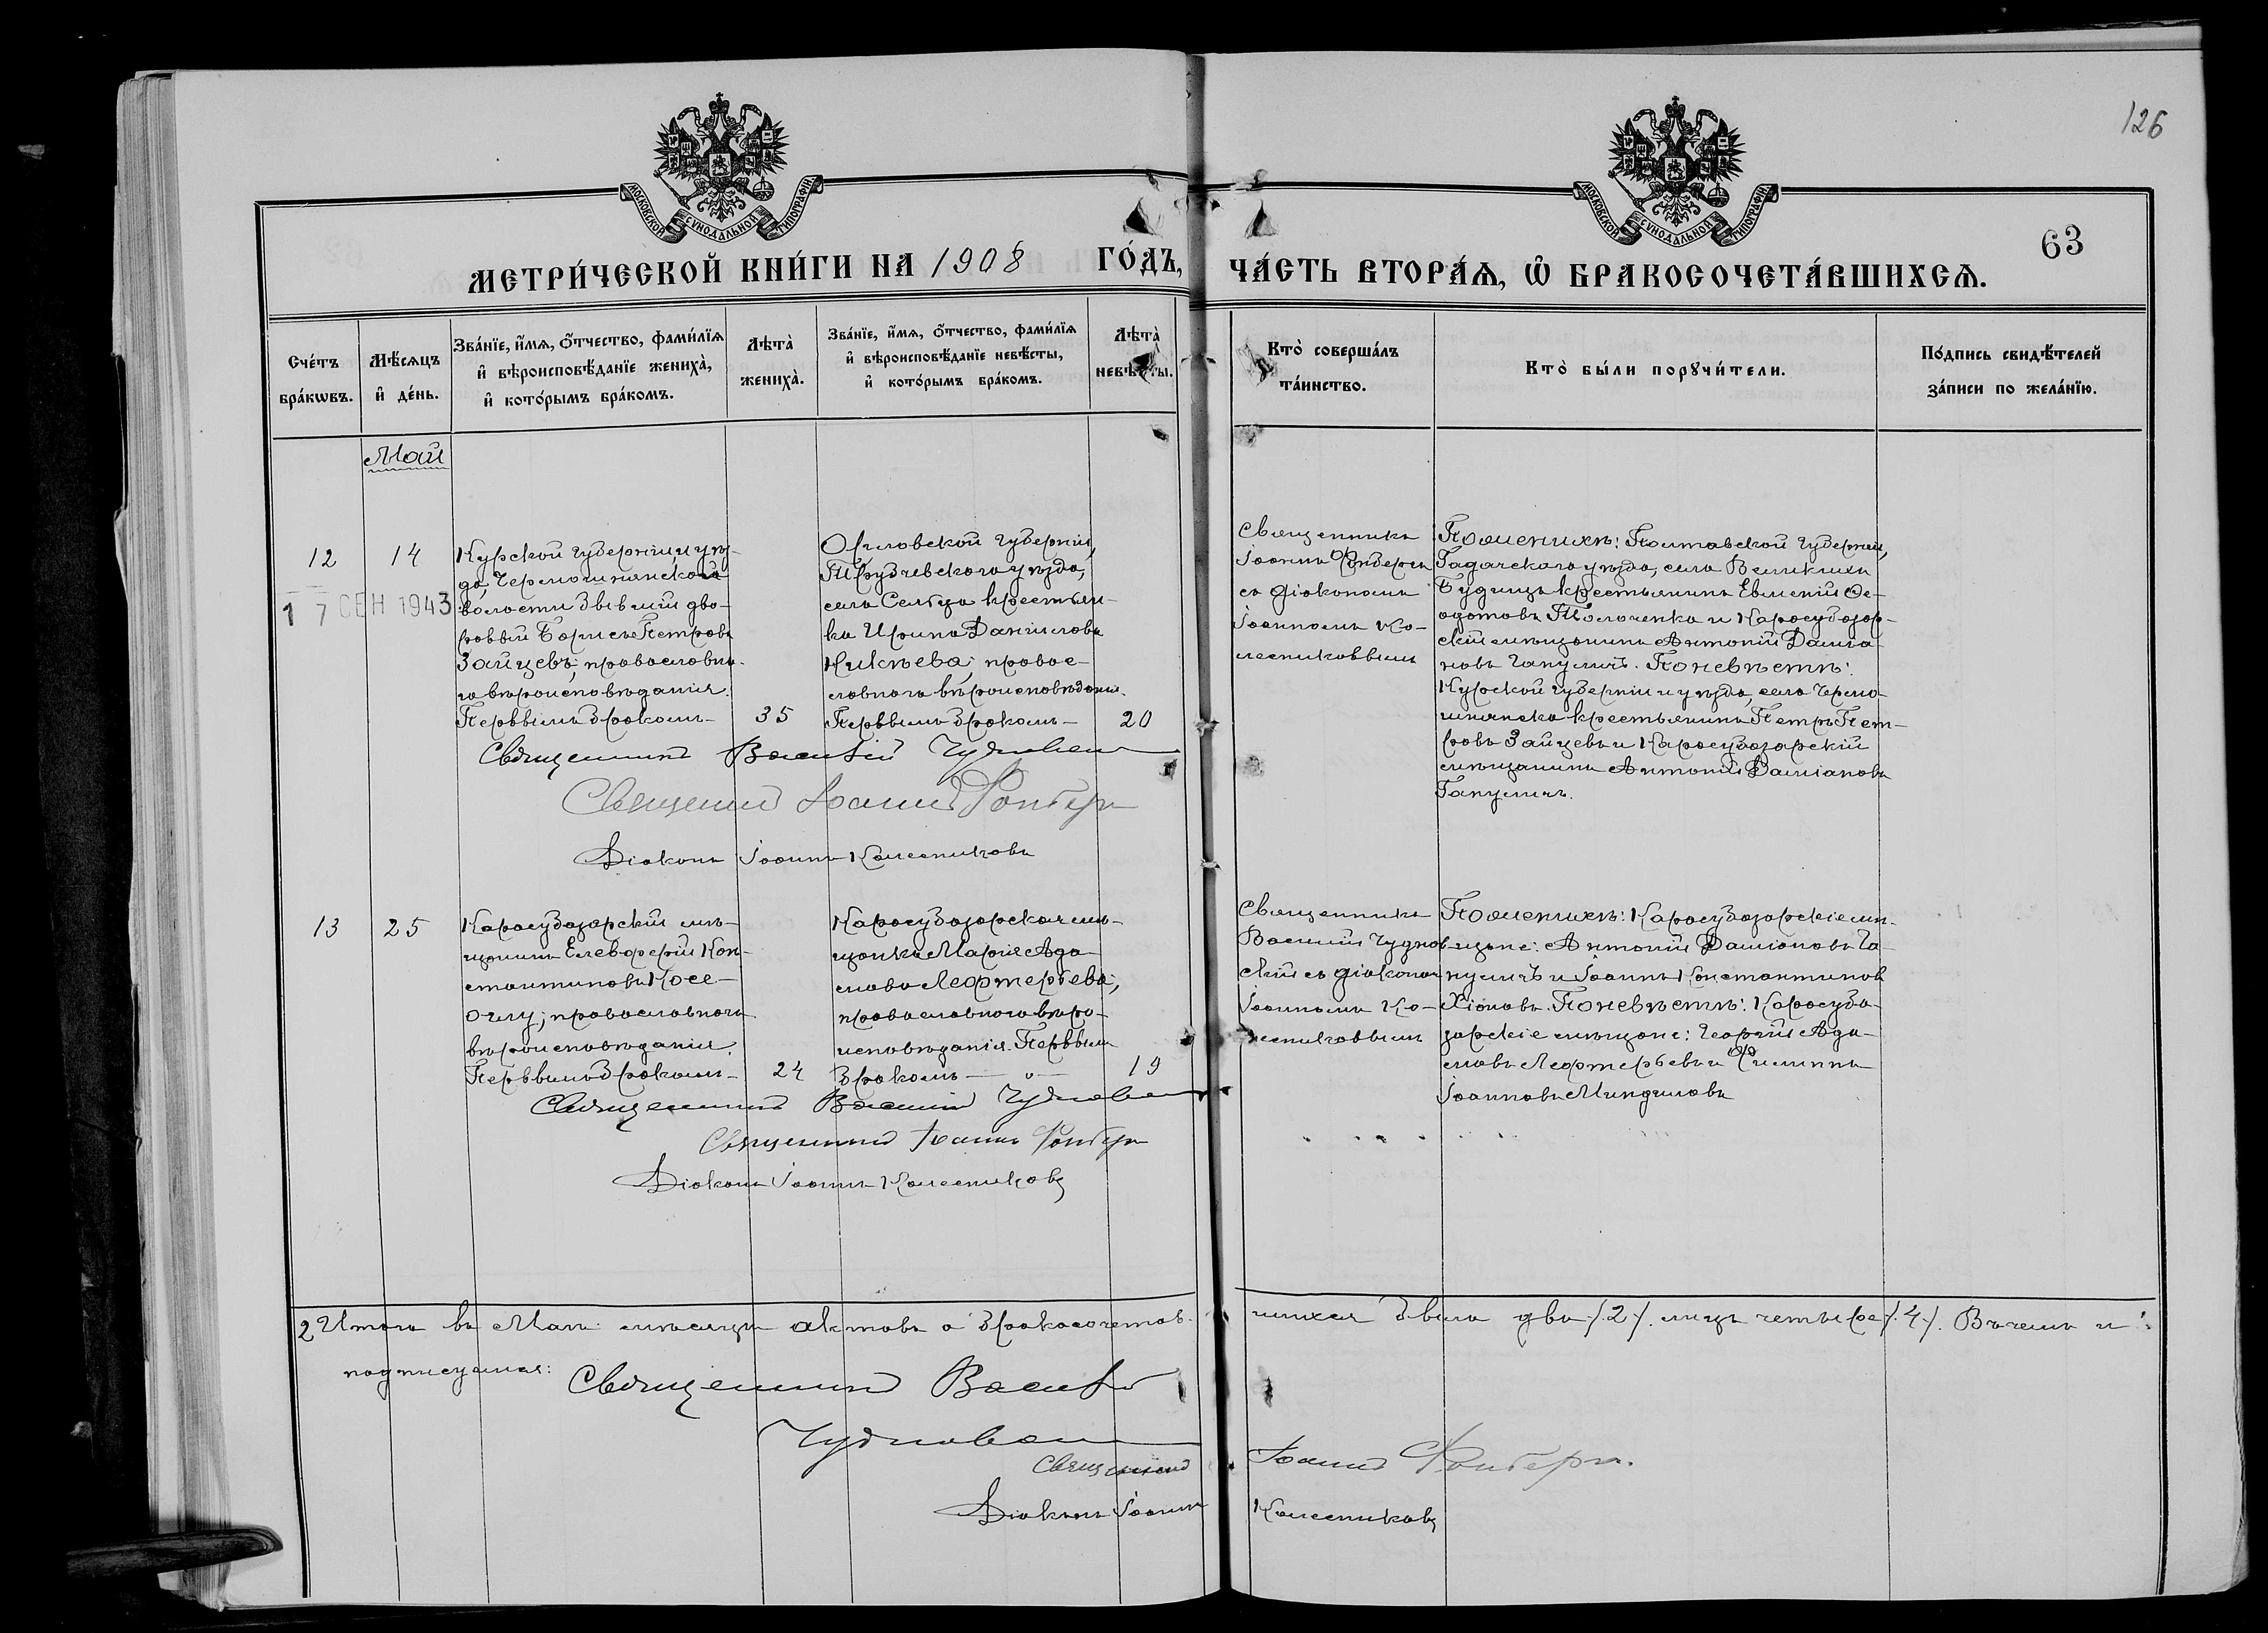 126
63
МОСКОВСКОЙ СѴНОДАЛЬНОЙ ТИПОГРАФІИ
МОСКОВСКОЙ СѴНОДАЛЬНОЙ ТИПОГРАФІИ
МЕТРИ́ЧЕСКОЙ КНИ́ГИ НА 1908 ГО́ДЪ,
ЧА́СТЬ ВТОРА́Ѧ, Ѡ҆ БРАКОСОЧЕТА́ВШИХСѦ.
Сче́тъ
бра́кѡвъ.
Мѣ́сѧцъ
и҆ де́нь.
Зва́нїе, и҆́мѧ, ѻ҆́тчество, фами́лїѧ
и҆ вѣроисповѣ́данїе жениха̀,
и҆ кото́рымъ бра́комъ.
Лѣта̀
жениха̀.
Зва́нїе, и҆́мѧ, ѻ҆́тчество, фами́лїѧ
и҆ вѣроисповѣ́данїе невѣ́сты,
и҆ кото́рымъ бра́комъ.
Лѣта̀
невѣ́сты.
Кто̀ соверша́лъ
та́инство.
Кто̀ бы́ли порꙋчи́тели.
По́дпись свидѣ́телей
за́писи по жела́нїю.
Май
12
14
1 7 СЕН 1943
Курской губерніи и уѣз-
да,
волости бывшій дво-
ровый Борисъ Петровъ
Зайцевъ; православна-
го вѣроисповѣданія.
Первымъ бракомъ-
35
Орловской губерніи,
Трубчевскаго уѣзда,
села Сельца крестьян-
ка Ирина Даніилова
православнаго вѣроисповѣданія.
Первымъ бракомъ-
20
Священникъ
Іоаннъ Фонбергъ
съ діакономъ
Іоанномъ Ко-
лесниковымъ
По женихѣ: Полтавской губерніи,
Гадячскаго уѣзда, села Великихъ
Будищъ крестьянинъ Евменій Ѳе-
одотовъ Толоченко и Карасубазар-
скій мѣщанинъ Антоній Даміа-
новъ Гапуличъ. По невѣстѣ:
Курской губерніи и уѣзда, села
крестьянинъ Петръ Пет-
ровъ Зайцевъ и Карасубазарскій
мѣщанинъ Антоній Даміановъ
Гапуличъ.
Священникъ Василій
Священникъ Іоаннъ Фонбергъ
Діаконъ Іоаннъ Колесниковъ
13
25
Карасубазарскій мѣ-
щанинъ Елевферій Кон-
стантиновъ Косе-
оглу; православнаго
вѣроисповѣданія.
Первымъ бракомъ-
24
Карасубазарская мѣ-
щанка Марія Ада-
мова Лефтерьева;
православнаго вѣро-
исповѣданія. Первымъ
бракомъ — „ —
19
Священникъ
Василій Чуднов-
скій съ діаконом
Іоанномъ Ко-
лесниковымъ
По женихѣ: Карасубазарскіе мѣ-
щане: Антоній Даміановъ Га-
пуличъ и Іоаннъ Константиновъ
Хіоновъ. По невѣстѣ: Карасуба-
зарскіе мѣщане: Георгій Ада-
мовъ Лефтерьевъ и Филиппъ
Іоанновъ Миндиловъ
Священникъ Василій
Священникъ Іоаннъ Фонбергъ
Діаконъ Іоаннъ Колесниковъ
2 Итого въ Маѣ мѣсяцѣ актовъ о бракосочетав-
шихся было два /2/. лицъ четыре /4/. Въ чемъ и
подписуемся:
Священникъ Василій
Чудновскій
Священникъ Іоаннъ Фонбергъ.
Діаконъ Іоаннъ Колесниковъ